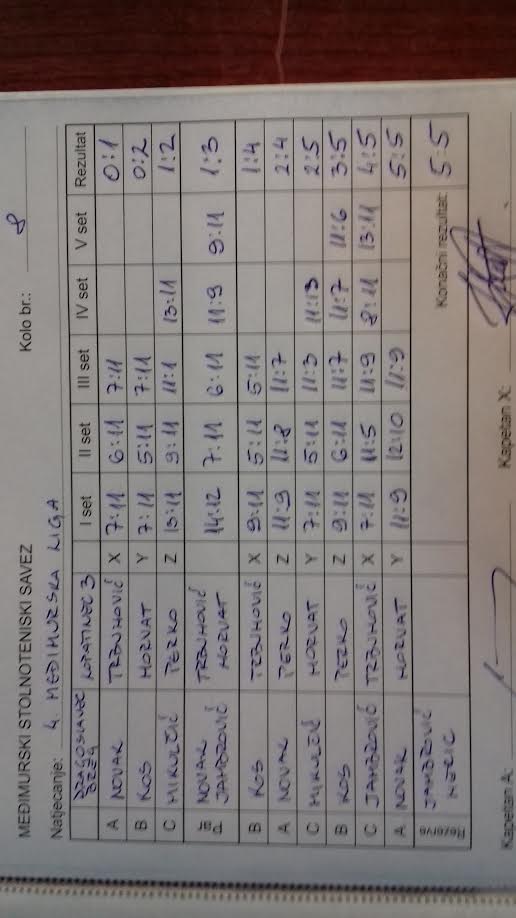 MEĐIMURSKI STOLNOTENISKI SAVEZ
Natjecanje: 4. MEĐIMURSKA LIGA Kolo br.: 8
DRAGOSLAVEC BREG LOPATINEC 3 I set II set III set IV set V set Rezultat
A NOVAK X TRBUHOVIĆ 7:11 6:11 7:11 0:1
B KOS Y HORVAT 7:11 5:11 7:11 0:2
C MIKULČIĆ Z PERKO 13:11 9:11 11:1 13:11 1:2
NOVAK JAMBROVIĆ TRBUHOVIĆ HORVAT 14:12 7:11 6:11 11:9 9:11 1:3
B KOS X TRBUHOVIĆ 9:11 5:11 5:11 1:4
A NOVAK Z PERKO 11:9 11:8 11:7 2:4
C MIKULČIĆ Y HORVAT 7:11 5:11 11:3 11:13 2:5
B KOS Z PERKO 9:11 6:11 11:7 11:7 11:6 3:5
C JAMBROVIĆ X TRBUHOVIĆ 7:11 11:5 11:9 8:11 13:11 4:5
A NOVAK Y HORVAT 11:9 12:10 11:9 5:5
Rezerve JAMBROVIĆ Konačni rezultat: 5:5
Kapetan A: Kapetan X: